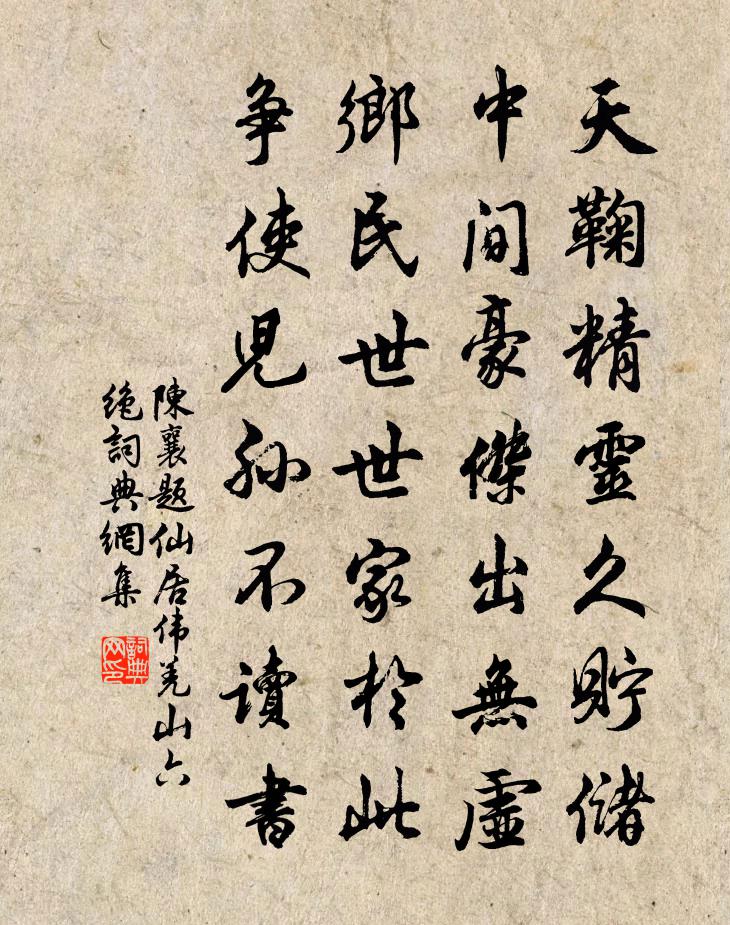 天鞠精靈久貯儲
中间豪傑出無虛
鄉民世世家於此
爭使児孙不讀書
陳襄题仙居伟羌山六
絶詞典網集
詞典网印